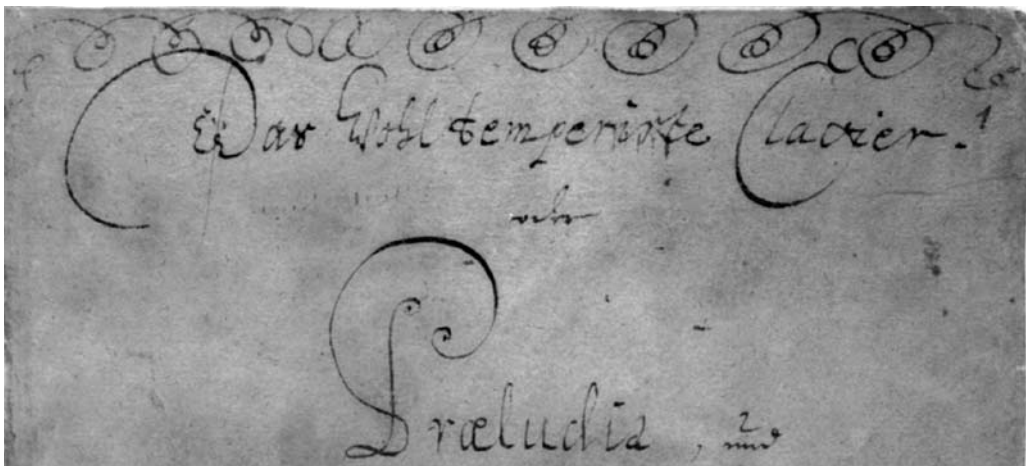 Das Wohltemperirte Clavier. 1
oder
Præludia, und